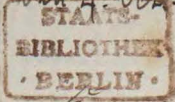 STAATS-
BIBLIOTHEK
· BERLIN ·